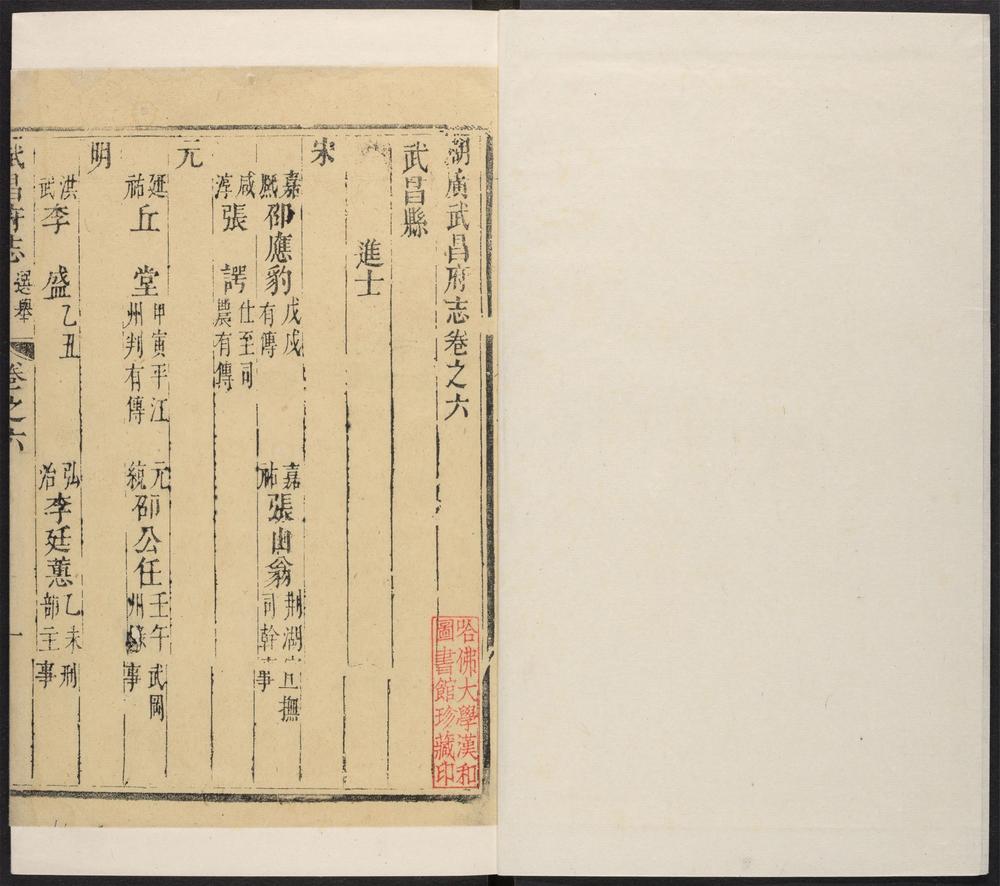 湖廣武昌府志卷之六
武昌縣
進士
宋
嘉熙 邵應豹 戊戌有傳 嘉祐 張山翁 荊湖宣撫司幹事
咸淳 張諤 仕至司農有傳
元
延祐 丘堂 甲寅平江州判有傳 元統 邵公任 壬午武岡州事
明
洪武 李盛 乙丑 弘治 李廷蕙 乙未刑部主事
武昌府志 選舉 卷之六 一
哈佛大學漢和
圖書館珍藏印